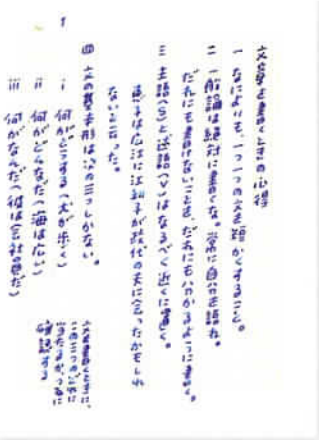 文章を書くときの心得
一 なによりも、一つ一つの文を短かくすること。
二 一般論は絶対に書くな。常に自分を語れ。
だれにも書けないことを、だれにもわかるように書く。
三 主語(S)と述語(V)はなるべく近くに置く。
恵子は広江に江利子が時代の夫に会ったかもしれ
ないと言った。
四 文の基本形は次の三つしかない。
i 何がどうする(犬が歩く)
ii 何がどんなだ(海は広い)
iii 何がなんだ(彼は会社の員だ)
文を書くときに、
この三つのどれに
当たるか、つねに
確認する